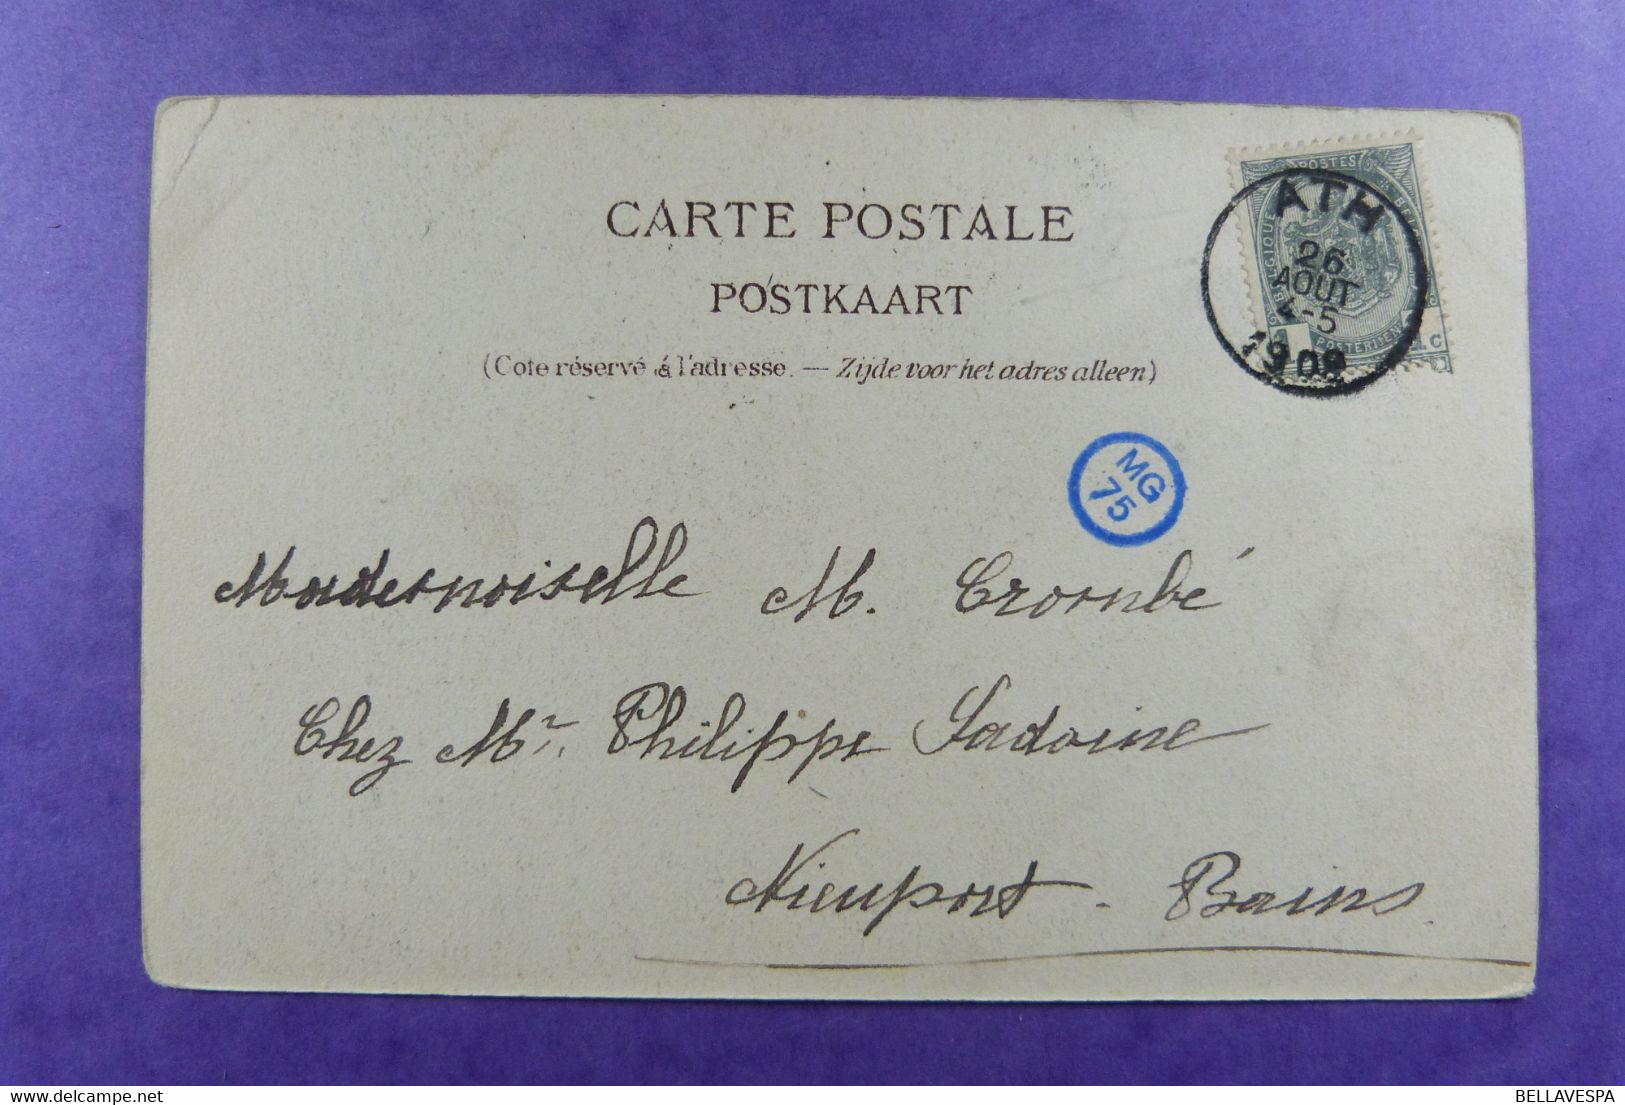 CARTE POSTALE
POSTKAART
(Cote réservé á l'adresse. — Zijde voor het adres alleen)
POSTES
BELGIQUE
POSTERIJEN
1c
ATH
26
AOUT
4-5
1909
MG
75
Mademoiselle M. Crombé
Chez Mr. Philippe Sadoine
Nieuport - Bains.
BELLAVESPA